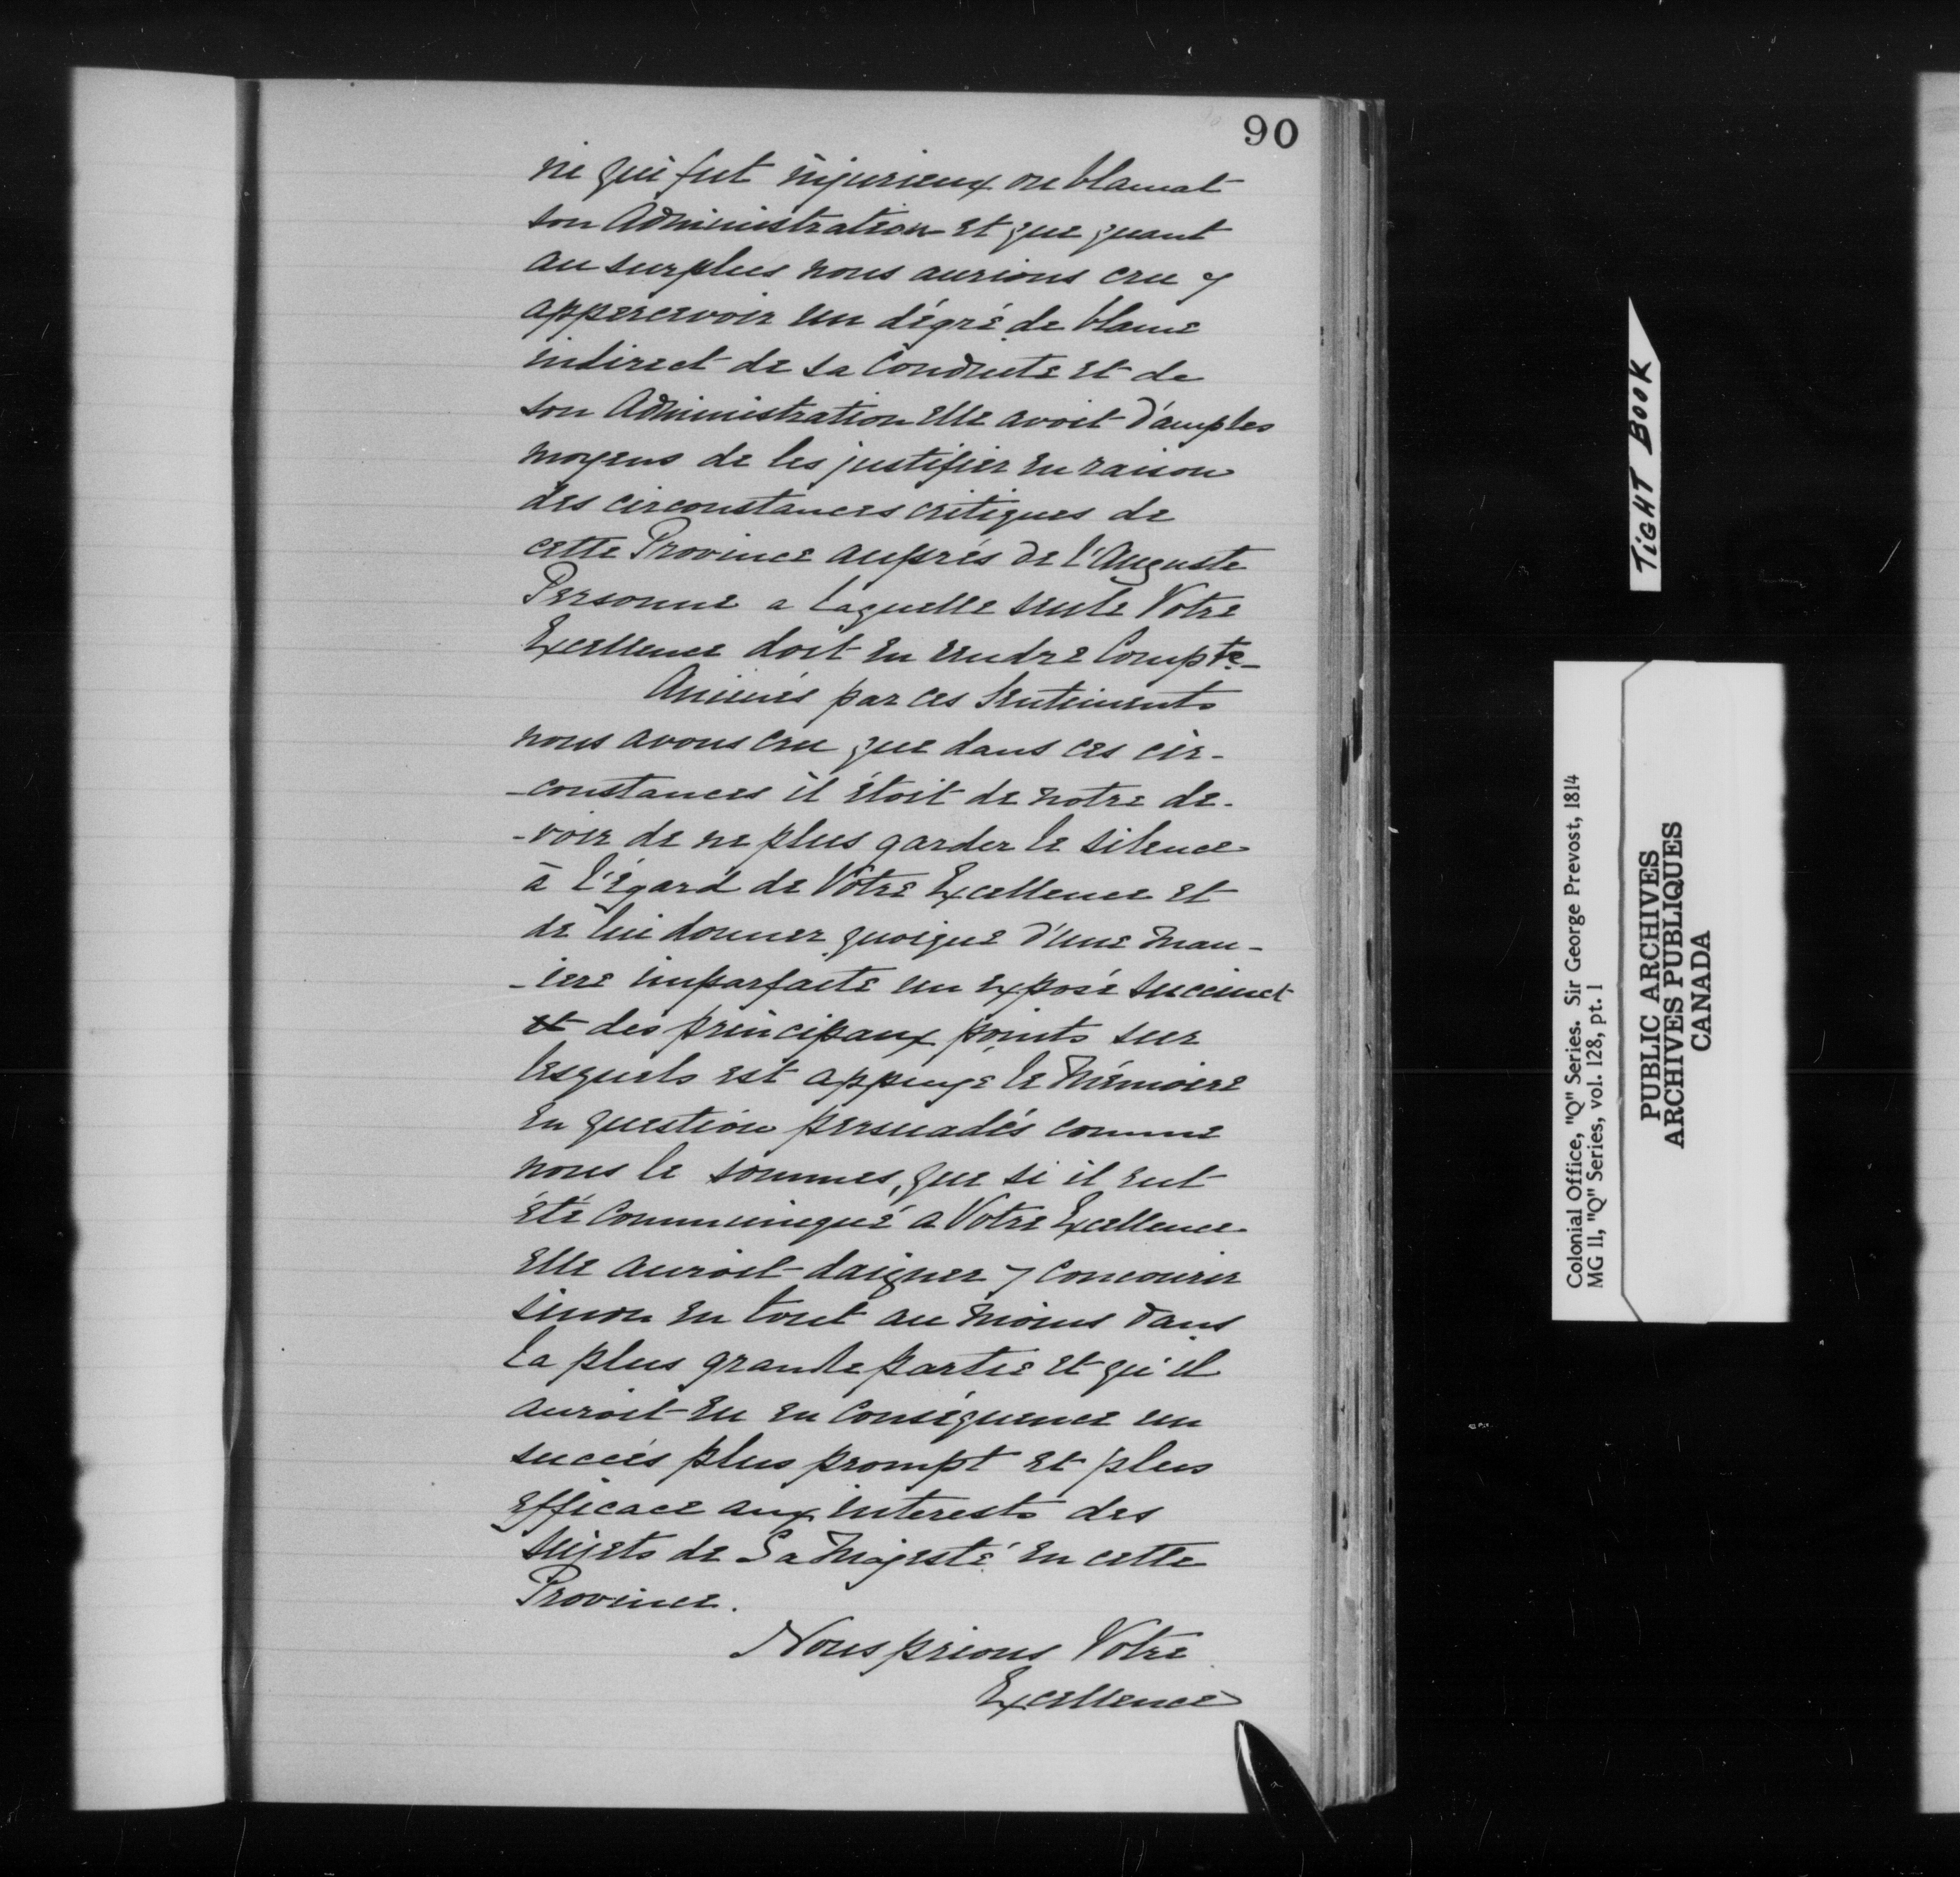 90
ni qui fut injurieux ou blamat
son Administration et que quant
au surplus nous aurions cru y
appercevoir un dégré de blame
indirect de sa Conduite et de
son Administration elle avoit d'amples
moyens de les justifier en raison
des circonstances critiques de
cette Province auprés de l'Auguste
Personne a laquelle seule Votre
Excellence doit en rendre Compte_
Animés par ces Sentiments
nous avons cru que dans ces cir-
-constances il étoit de notre de-
-voir de ne plus garder le silence
à l'égard de Votre Excellence et
de lui donner quoique d'une man-
-iere imparfaite un exposé succinct
et des principaux points sur
lesquels est appuyé le Mémoire
en question persuadés comme
nous le sommes, que si il eut
été Communiqué a Votre Excellence
elle auroit daigner y concourir
sinon en tout au moins dans
la plus grande partie et qu'il
auroit eu en Conséquence un
succès plus prompt et plus
efficace aux interests des
sujets de Sa Majesté en cette
Province.
Nous prions Votre
Excellence
TIGHT BOOK
Colonial Office, "Q" Series. Sir George Prevost, 1814
MG 11, "Q" Series, vol. 128, pt. 1
PUBLIC ARCHIVES
ARCHIVES PUBLIQUES
CANADA